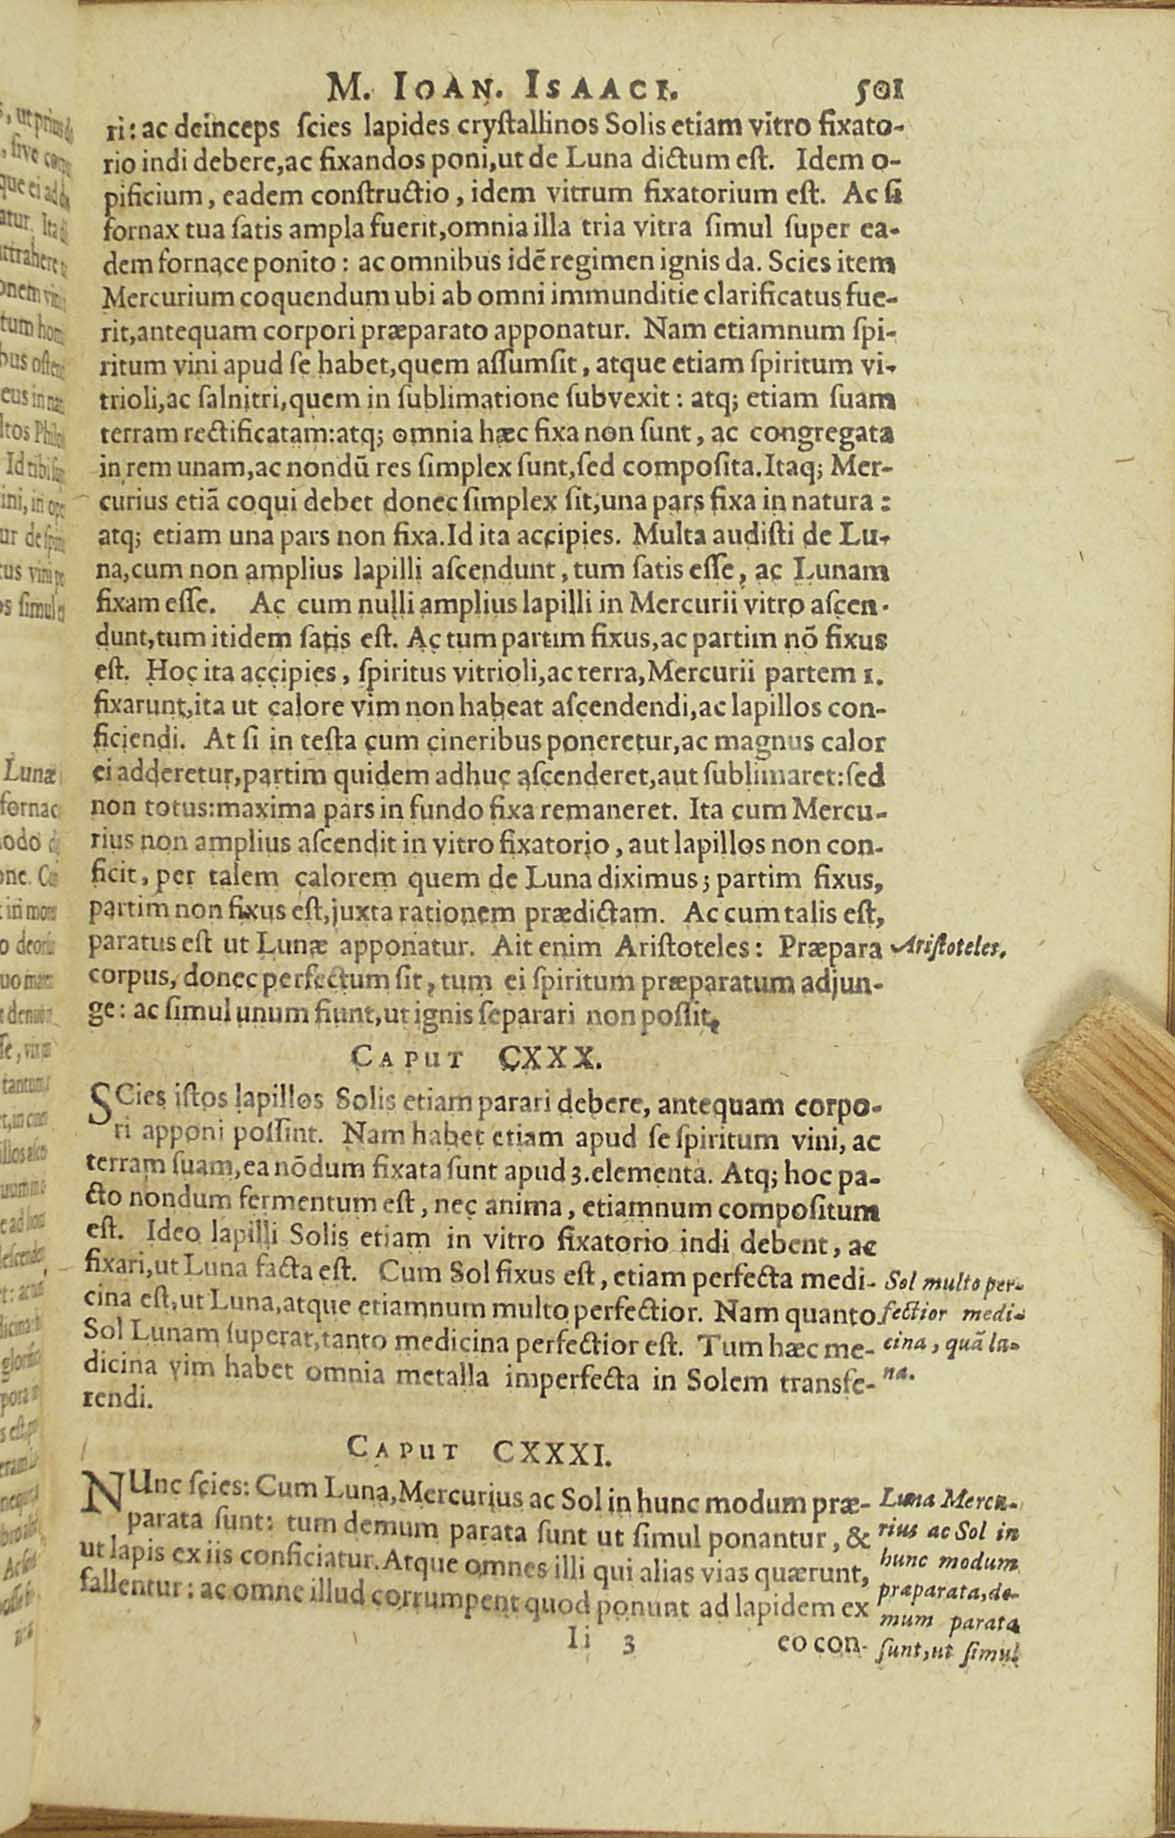 M. IOAN. ISAACI. 501
ri: ac deinceps ſcies lapides cryſtallinos Solis etiam vitro fixato-
rio indi debere, ac fixandos poni, ut de Luna dictum eſt. Idem o-
pificium, eadem conſtructio, idem vitrum fixatorium eſt. Ac ſi
fornax tua ſatis ampla fuerit, omnia illa tria vitra ſimul ſuper ea-
dem fornace ponito: ac omnibus idē regimen ignis da. Scies item
Mercurium coquendum ubi ab omni immunditie clarificatus fue-
rit, antequam corpori præparato apponatur. Nam etiamnum ſpi-
ritum vini apud ſe habet, quem aſſumſit, atque etiam ſpiritum vi-
trioli, ac ſalnitri, quem in ſublimatione ſubvexit: atq; etiam ſuam
terram rectificatam: atq; omnia hæc fixa non ſunt, ac congregata
in rem unam, ac nondū res ſimplex ſunt, ſed compoſita. Itaq; Mer-
curius etiā coqui debet donec ſimplex ſit, una pars fixa in natura:
atq; etiam una pars non fixa. Id ita accipies. Multa audiſti de Lu-
na, cum non amplius lapilli aſcendunt, tum ſatis eſſe, ac Lunam
fixam eſſe. Ac cum nulli amplius lapilli in Mercurii vitro aſcen-
dunt, tum itidem ſatis eſt. Ac tum partim fixus, ac partim nō fixus
eſt. Hoc ita accipies, ſpiritus vitrioli, ac terra, Mercurii partem 1.
fixarunt, ita ut calore vim non habeat aſcendendi, ac lapillos con-
ficiendi. At ſi in teſta cum cineribus poneretur, ac magnus calor
ei adderetur, partim quidem adhuc aſcenderet, aut ſublimaret: ſed
non totus: maxima pars in fundo fixa remaneret. Ita cum Mercu-
rius non amplius aſcendit in vitro fixatorio, aut lapillos non con-
ficit, per talem calorem quem de Luna diximus; partim fixus,
partim non fixus eſt, juxta rationem prædictam. Ac cum talis eſt,
paratus eſt ut Lunæ apponatur. Ait enim Ariſtoteles: Præpara
Ariſtoteles.
corpus, donec perfectum ſit, tum ei ſpiritum præparatum adjun-
ge: ac ſimul unum fiunt, ut ignis ſeparari non poſſit.
CAPUT CXXX.
SCies iſtos lapillos Solis etiam parari debere, antequam corpo-
ri apponi poſſint. Nam habet etiam apud ſe ſpiritum vini, ac
terram ſuam, ea nōdum fixata ſunt apud 3. elementa. Atq; hoc pa-
cto nondum fermentum eſt, nec anima, etiamnum compoſitum
eſt. Ideo lapilli Solis etiam in vitro fixatorio indi debent, ac
fixari, ut Luna facta eſt. Cum Sol fixus eſt, etiam perfecta medi-
cina eſt, ut Luna, atque etiamnum multo perfectior. Nam quanto
Sol Lunam ſuperat, tanto medicina perfectior eſt. Tum hæc me-
dicina vim habet omnia metalla imperfecta in Solem transfe-
rendi.
Sol multo per-
fectior medi-
cina, quā lu-
na.
CAPUT CXXXI.
NUnc ſcies: Cum Luna, Mercurius ac Sol in hunc modum præ-
parata ſunt: tum demum parata ſunt ut ſimul ponantur, &
ut lapis ex iis conficiatur. Atque omnes illi qui alias vias quærunt,
fallentur: ac omne illud corrumpent quod ponunt ad lapidem ex
Luna Mercu-
rius ac Sol in
hunc modum
præparata, de-
mum parata
ſunt, ut ſimul
Ii 3 eo con-